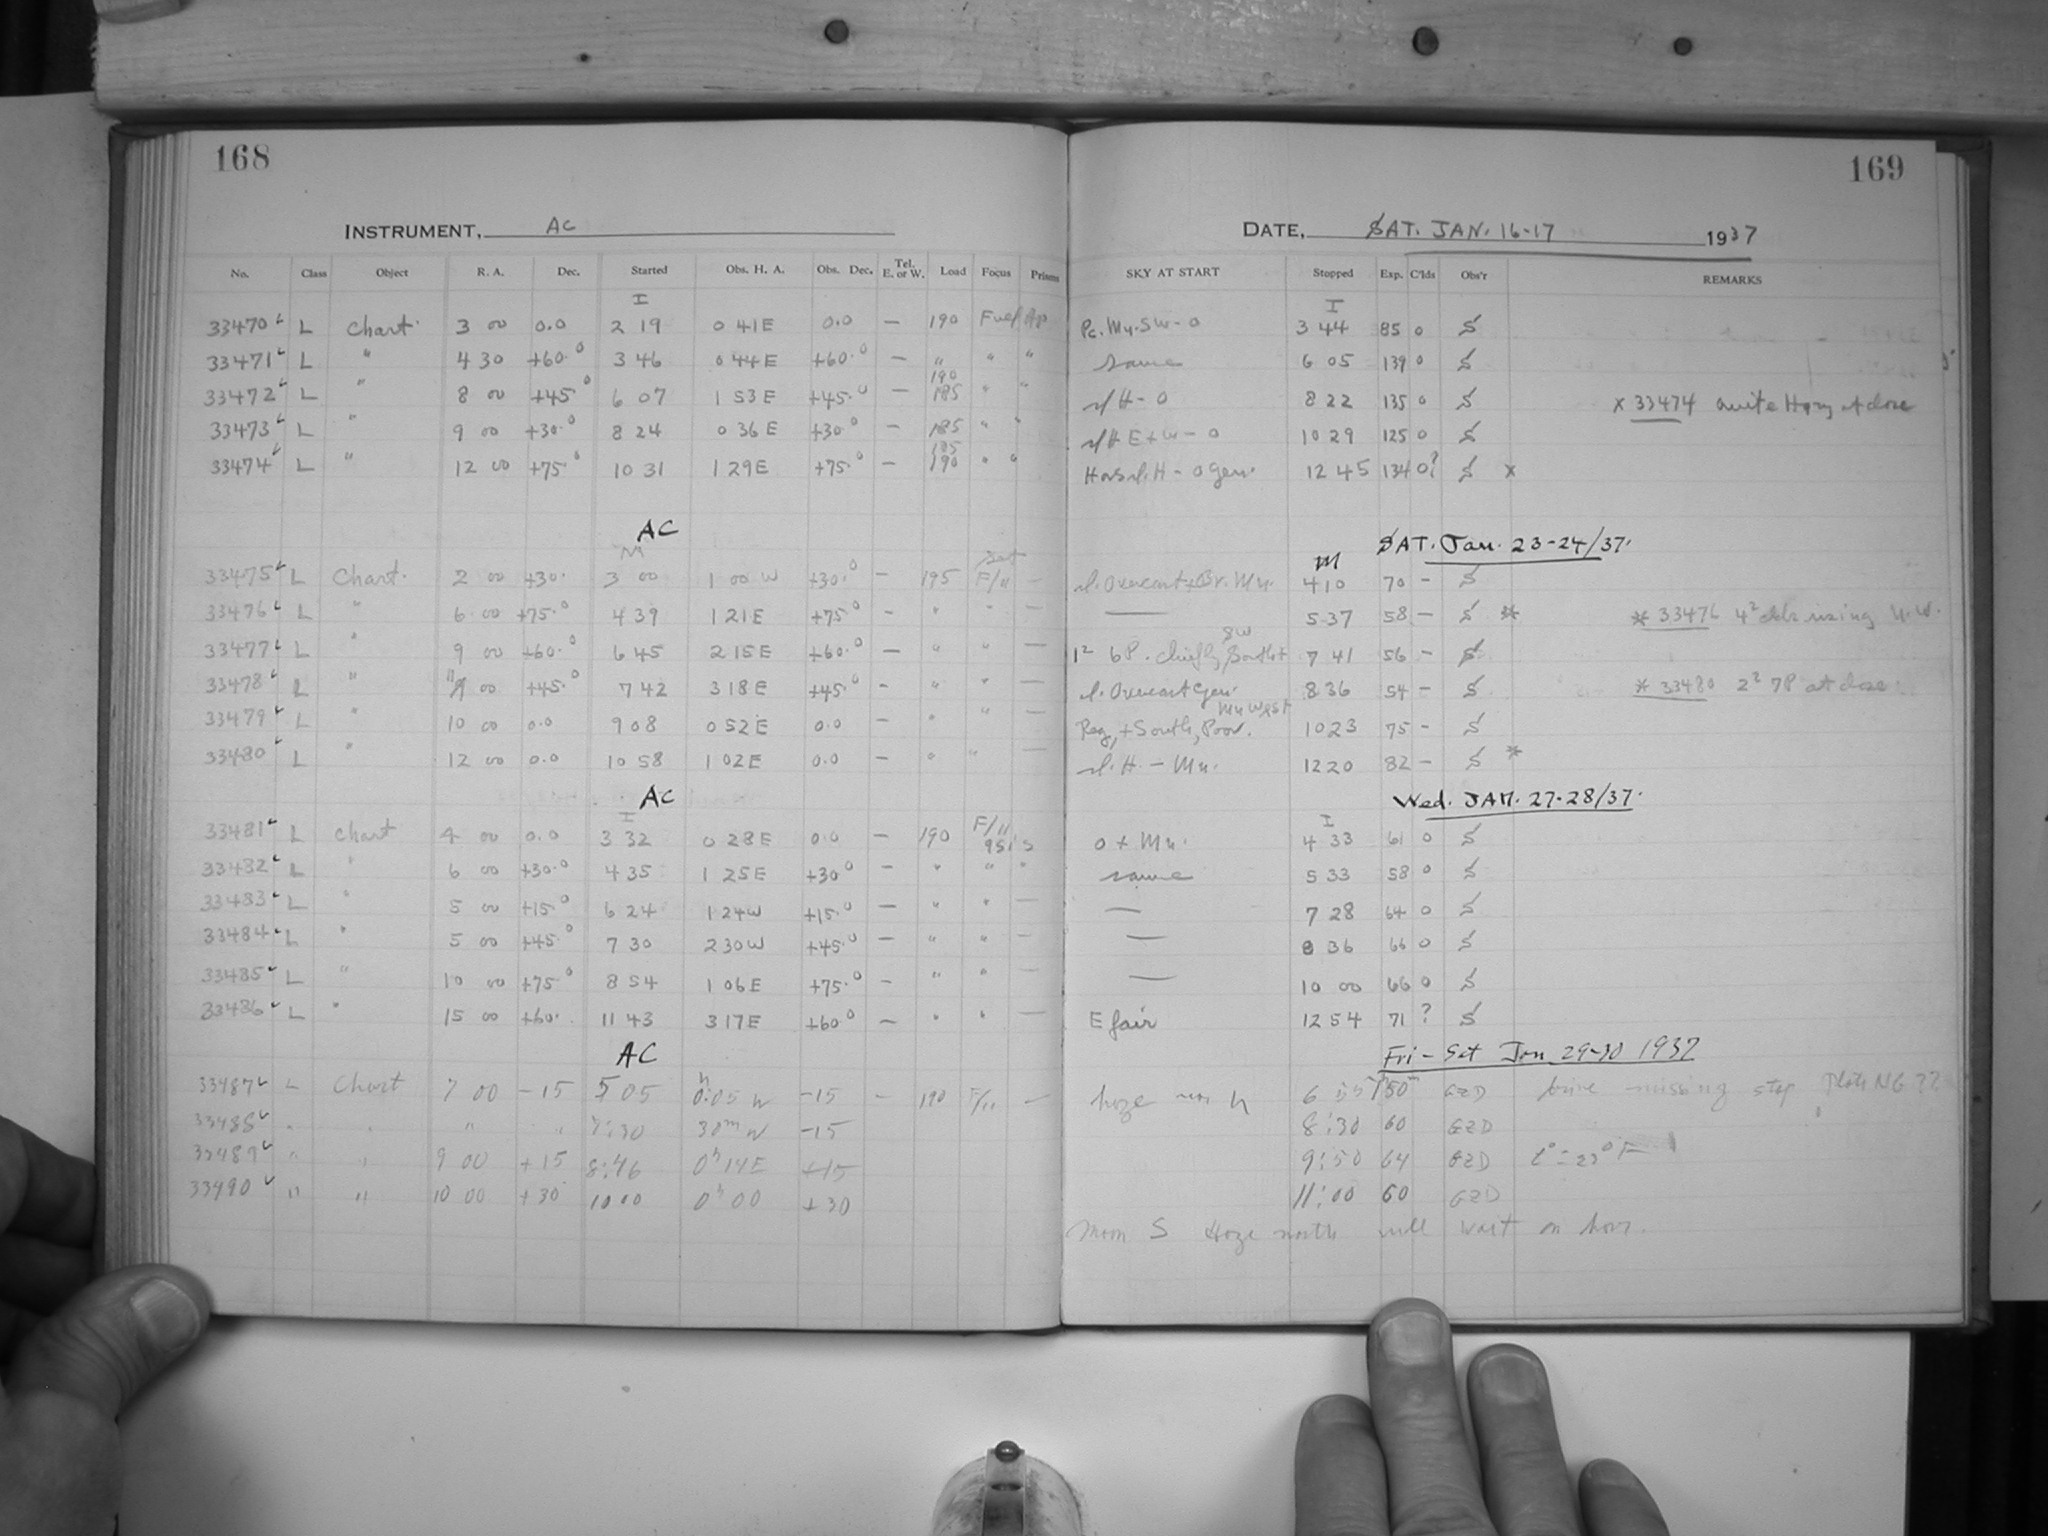 168
INSTRUMENT, AC
No. Class Object R. A. Dec. Started Obs. H. A. Obs. Dec. Tel. E. or W. Load Focus Prisms
I
33470 L Chart 3 00 0.0 2 19 0 41 E 0.0 — 190 Full Ap
33471 L " 4 30 +60.0 3 46 0 44 E +60.0 — " " "
33472 L " 8 00 +45.0 6 07 1 53 E +45.0 — 190 185 " "
33473 L " 9 00 +30.0 8 24 0 36 E +30.0 — 185 " "
33474 L " 12 00 +75.0 10 31 1 29 E +75.0 — 185 190 " "
AC
M
33475 L Chart. 2 00 +30. 3 00 1 00 W +30.0 — 195 F/11 —
33476 L " 6 00 +75.0 4 39 1 21 E +75.0 — " " —
33477 L " 9 00 +60.0 6 45 2 15 E +60.0 — " " —
33478 L " 11 00 +45.0 7 42 3 18 E +45.0 — " " —
33479 L " 10 00 0.0 9 08 0 52 E 0.0 — " " —
33480 L " 12 00 0.0 10 58 1 02 E 0.0 — " " —
AC
I
33481 L Chart 4 00 0.0 3 32 0 28 E 0.0 — 190 F/11
33482 L " 6 00 +30.0 4 35 1 25 E +30.0 — " " "
33483 L " 5 00 +15.0 6 24 1 24 W +15.0 — " " —
33484 L " 5 00 +45.0 7 30 2 30 W +45.0 — " " —
33485 L " 10 00 +75.0 8 54 1 06 E +75.0 — " " —
33486 L " 15 00 +60. 11 43 3 17 E +60.0 — " " —
AC
33487 L Chart 7 00 -15 5 05 0h:05 W -15 — 190 F/11 —
33488 " " " " 7:30 30m W -15
33489 " " 9 00 +15 8:46 0h 14 E +15
33490 " " 10 00 +30 10 00 0h 00 +30
169
DATE, SAT. JAN. 16-17 1937
SKY AT START Stopped Exp. C'lds Obs'r REMARKS
I
Pc. Mn. SW - 0 3 44 85 0 S
same 6 05 139 0 S
sl H - 0 8 22 135 0 S x 33474 Quite Hazy at close
sl H E + W - 0 10 29 125 0 S
sl. H - 0 gen. 12 45 134 0? S x
SAT. Jan. 23-24/37.
M
sl. Overcast + Br. Mn. 4 10 70 — S
— 5 37 58 — S * * 33476 N.W.
SW
6P. Chiefly South + 7 41 56 — S
sl. Overcast gen. 8 36 54 — S * 33480 7P at close
Mn West
+ South, Poor. 10 23 75 — S
sl. H. - Mn. 12 20 82 — S *
Wed. JAN. 27-28/37.
I
0 + Mn. 4 33 61 0 S
same 5 33 58 0 S
— 7 28 64 0 S
— 8 36 66 0 S
— 10 00 66 0 S
E fair 12 54 71 ? S
Fri - Sat Jan 29-30 1937
haze 6 50 GZD drive missing step Plate NG ??
8:30 60 GZD
9:50 64 GZD
11:00 60 GZD
Moon S Haze north will wait an hour.